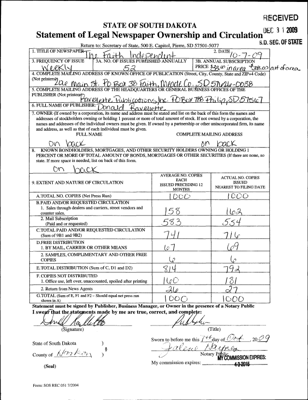 RECEIVED
DEC 31 2009
S.D. SEC. OF STATE
STATE OF SOUTH DAKOTA
Statement of Legal Newspaper Ownership and Circulation
Return to: Secretary of State, 500 E. Capitol, Pierre, SD 57501-5077
1. TITLE OF NEWSPAPER The Faith Independent
2. DATE 10-7-09
3. FREQUENCY OF ISSUE Weekly
3A. NO. OF ISSUES PUBLISHED ANNUALLY 52
3B. ANNUAL SUBSCRIPTION PRICE
4. COMPLETE MAILING ADDRESS OF KNOWN OFFICE OF PUBLICATION (Street, City, County, State and ZIP+4 Code) (Not printers)
PO Box 38 Faith Meade Co. SD 57626-0038
5. COMPLETE MAILING ADDRESS OF THE HEADQUARTERS OR GENERAL BUSINESS OFFICES OF THE PUBLISHER (Not printers)
Ravellette Publications, Inc. PO Box 788 Philip, SD 57567
6. FULL NAME OF PUBLISHER: Donald Ravellette
7. OWNER (If owned by a corporation, its name and address must be stated and list on the back of this form the names and addresses of stockholders owning or holding 1 percent or more of total amount of stock. If not owned by a corporation, the names and addresses of the individual owners must be given. If owned by a partnership or other unincorporated firm, its name and address, as well as that of each individual must be given.
FULL NAME COMPLETE MAILING ADDRESS
on back on back
8. KNOWN BONDHOLDERS, MORTGAGEES, AND OTHER SECURITY HOLDERS OWNING OR HOLDING 1 PERCENT OR MORE OF TOTAL AMOUNT OF BONDS, MORTGAGES OR OTHER SECURITIES (If there are none, so state. If more space is needed, list on back of this form.
on back
9. EXTENT AND NATURE OF CIRCULATION
AVERAGE NO. COPIES EACH ISSUED PRECEDING 12 MONTHS
ACTUAL NO. COPIES ISSUED NEAREST TO FILING DATE
A. TOTAL NO. COPIES (Net Press Run) 1000 1000
B. PAID AND/OR REQUESTED CIRCULATION
1. Sales through dealers and carriers, street vendors and counter sales. 158 162
2. Mail Subscription (Paid and or requested) 583 554
C. TOTAL PAID AND/OR REQUESTED CIRCULATION (Sum of 9B1 and 9B2) 741 716
D. FREE DISTRIBUTION
1. BY MAIL, CARRIER OR OTHER MEANS 67 69
2. SAMPLES, COMPLIMENTARY AND OTHER FREE COPIES 6 6
E. TOTAL DISTRIBUTION (Sum of C, D1 and D2) 814 792
F. COPIES NOT DISTRIBUTED
1. Office use, left over, unaccounted, spoiled after printing 160 181
2. Return from News Agents 26 27
G. TOTAL (Sum of E, F1 and F2 - Should equal net press run shown in A) 1000 1000
Statement must be signed by Publisher, Business Manager, or Owner in the presence of a Notary Public
I swear that the statements made by me are true, correct, and complete:
(Signature) (Title)
State of South Dakota )
County of )
(Seal)
Sworn to before me this 1st day of Oct 2009
Notary Public
My commission expires: MY COMMISSION EXPIRES